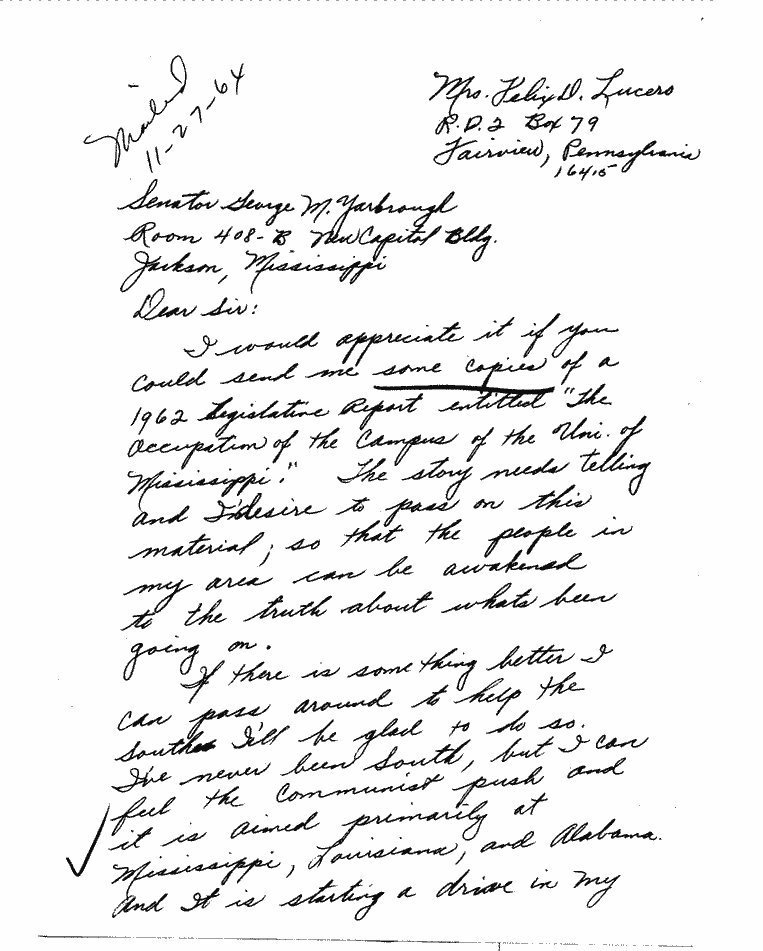 Mailed
11-27-64
Mrs. Felix D. Lucero
R.D.2 Box 79
Fairview, Pennsylvania
16415
Senator George M. Yarbrough
Room 408-B New Capitol Bldg.
Jackson, Mississippi
Dear Sir:
I would appreciate it if you
could send me some copies of a
1962 Legislative Report entitled "The
Occupation of the Campus of the Uni. of
Mississippi." The story needs telling
and I desire to pass on this
material; so that the people in
my area can be awakened
to the truth about whats been
going on.
If there is something better I
can pass around to help the
South I'll be glad to do so.
I've never been South, but I can
feel the Communist push and
it is aimed primarily at
Mississippi, Louisiana, and Alabama.
And It is starting a drive in my